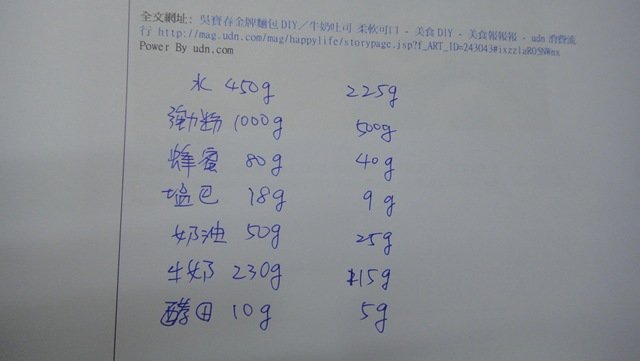 全文網址: 吳寶春金牌麵包DIY／牛奶吐司 柔軟可口 - 美食DIY - 美食報報報 - udn 消費流
行 http://mag.udn.com/mag/happylife/storypage.jsp?f_ART_ID=243043#ixzz1aR05NWnx
Power By udn.com
水 450g 225g
強力粉 1000g 500g
蜂蜜 80g 40g
塩巴 18g 9g
奶油 50g 25g
牛奶 230g 115g
酵母 10g 5g